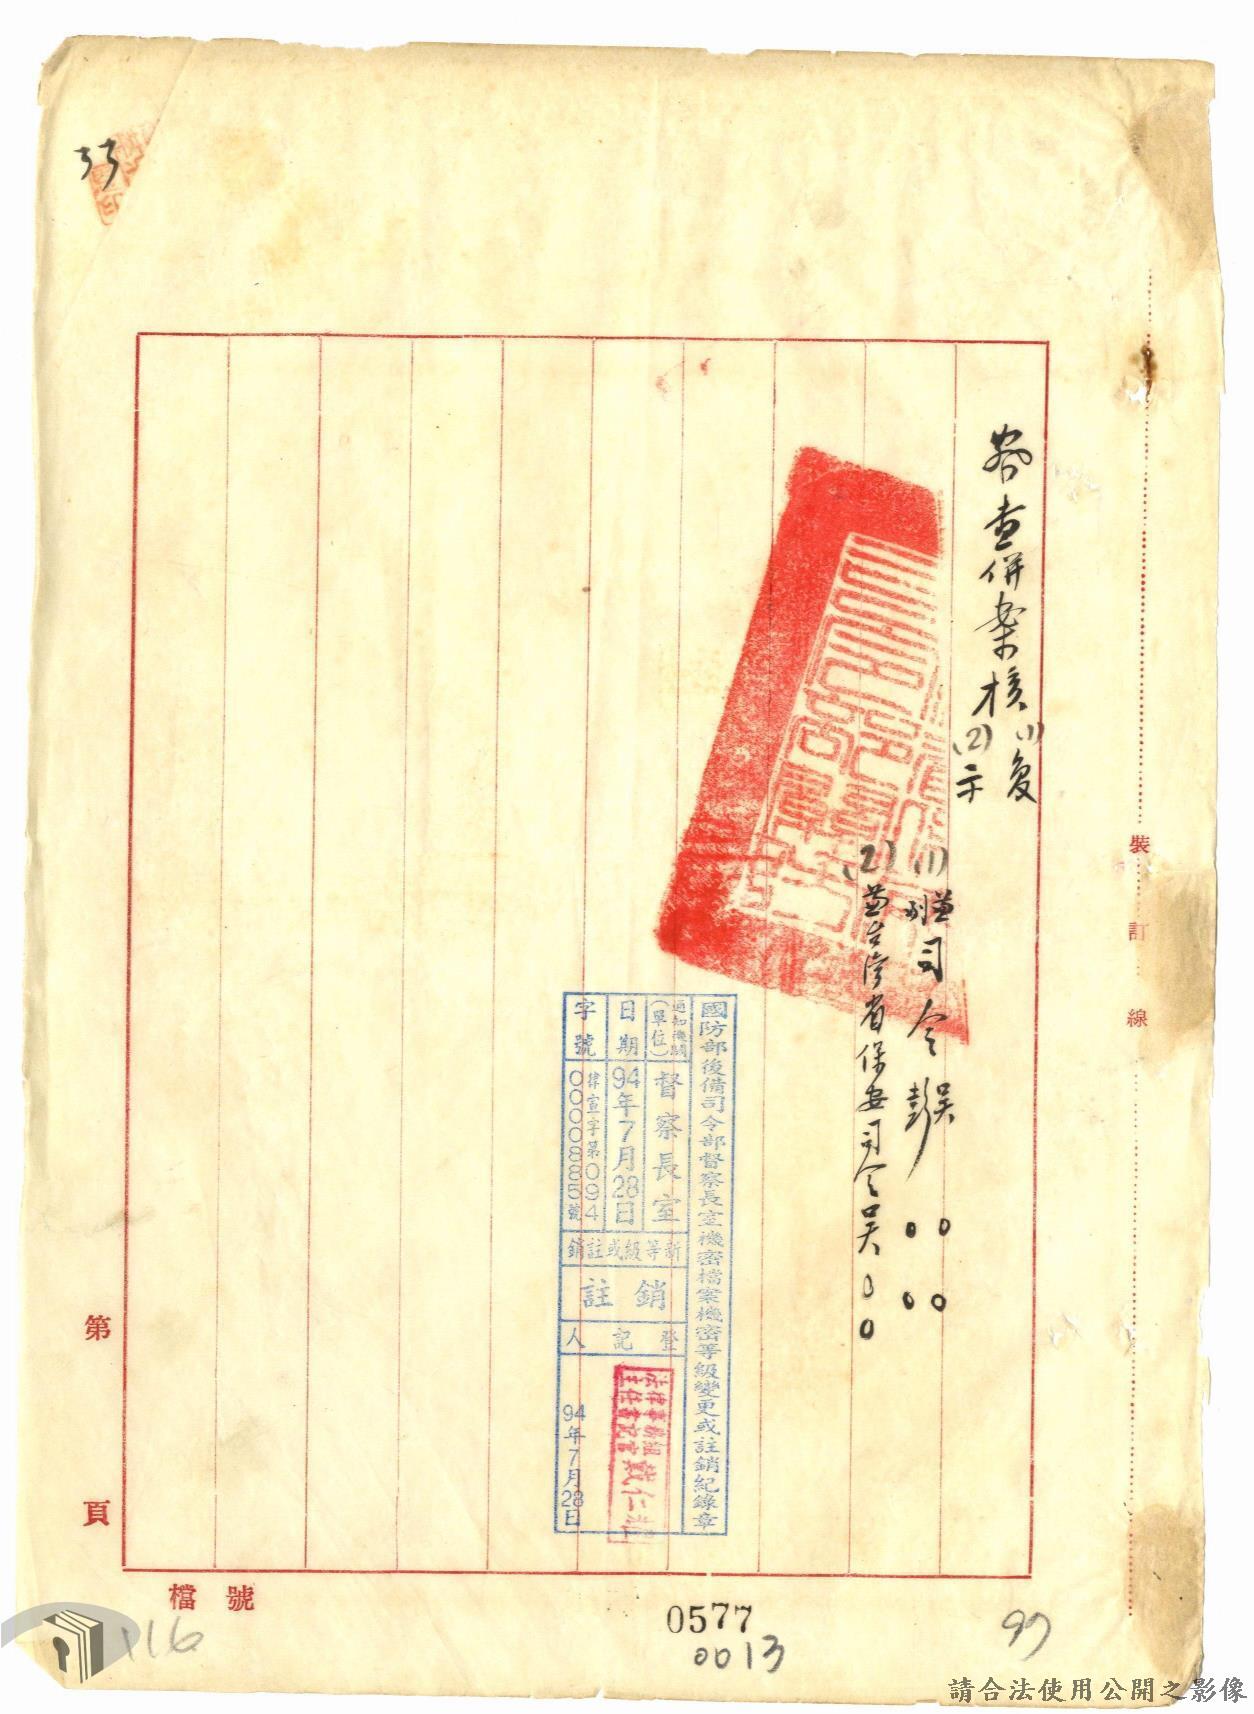 33
察查併案核(1)复
(2)示
(1)兼司令吳○○
副司令彭○○
(2)兼台湾省保安司令吳○○
裝訂線
國防部後備司令部督察長室機密檔案機密等級變更或註銷紀錄章
通知機關(單位)
督察長室
日期
94年7月28日
字號
律宣字第0940000885號
新等級或註銷
註銷
登記人
法律事務組
主任書記官
戴仁
94年7月28日
第 頁
檔號
116
0577
0013
97
請合法使用公開之影像